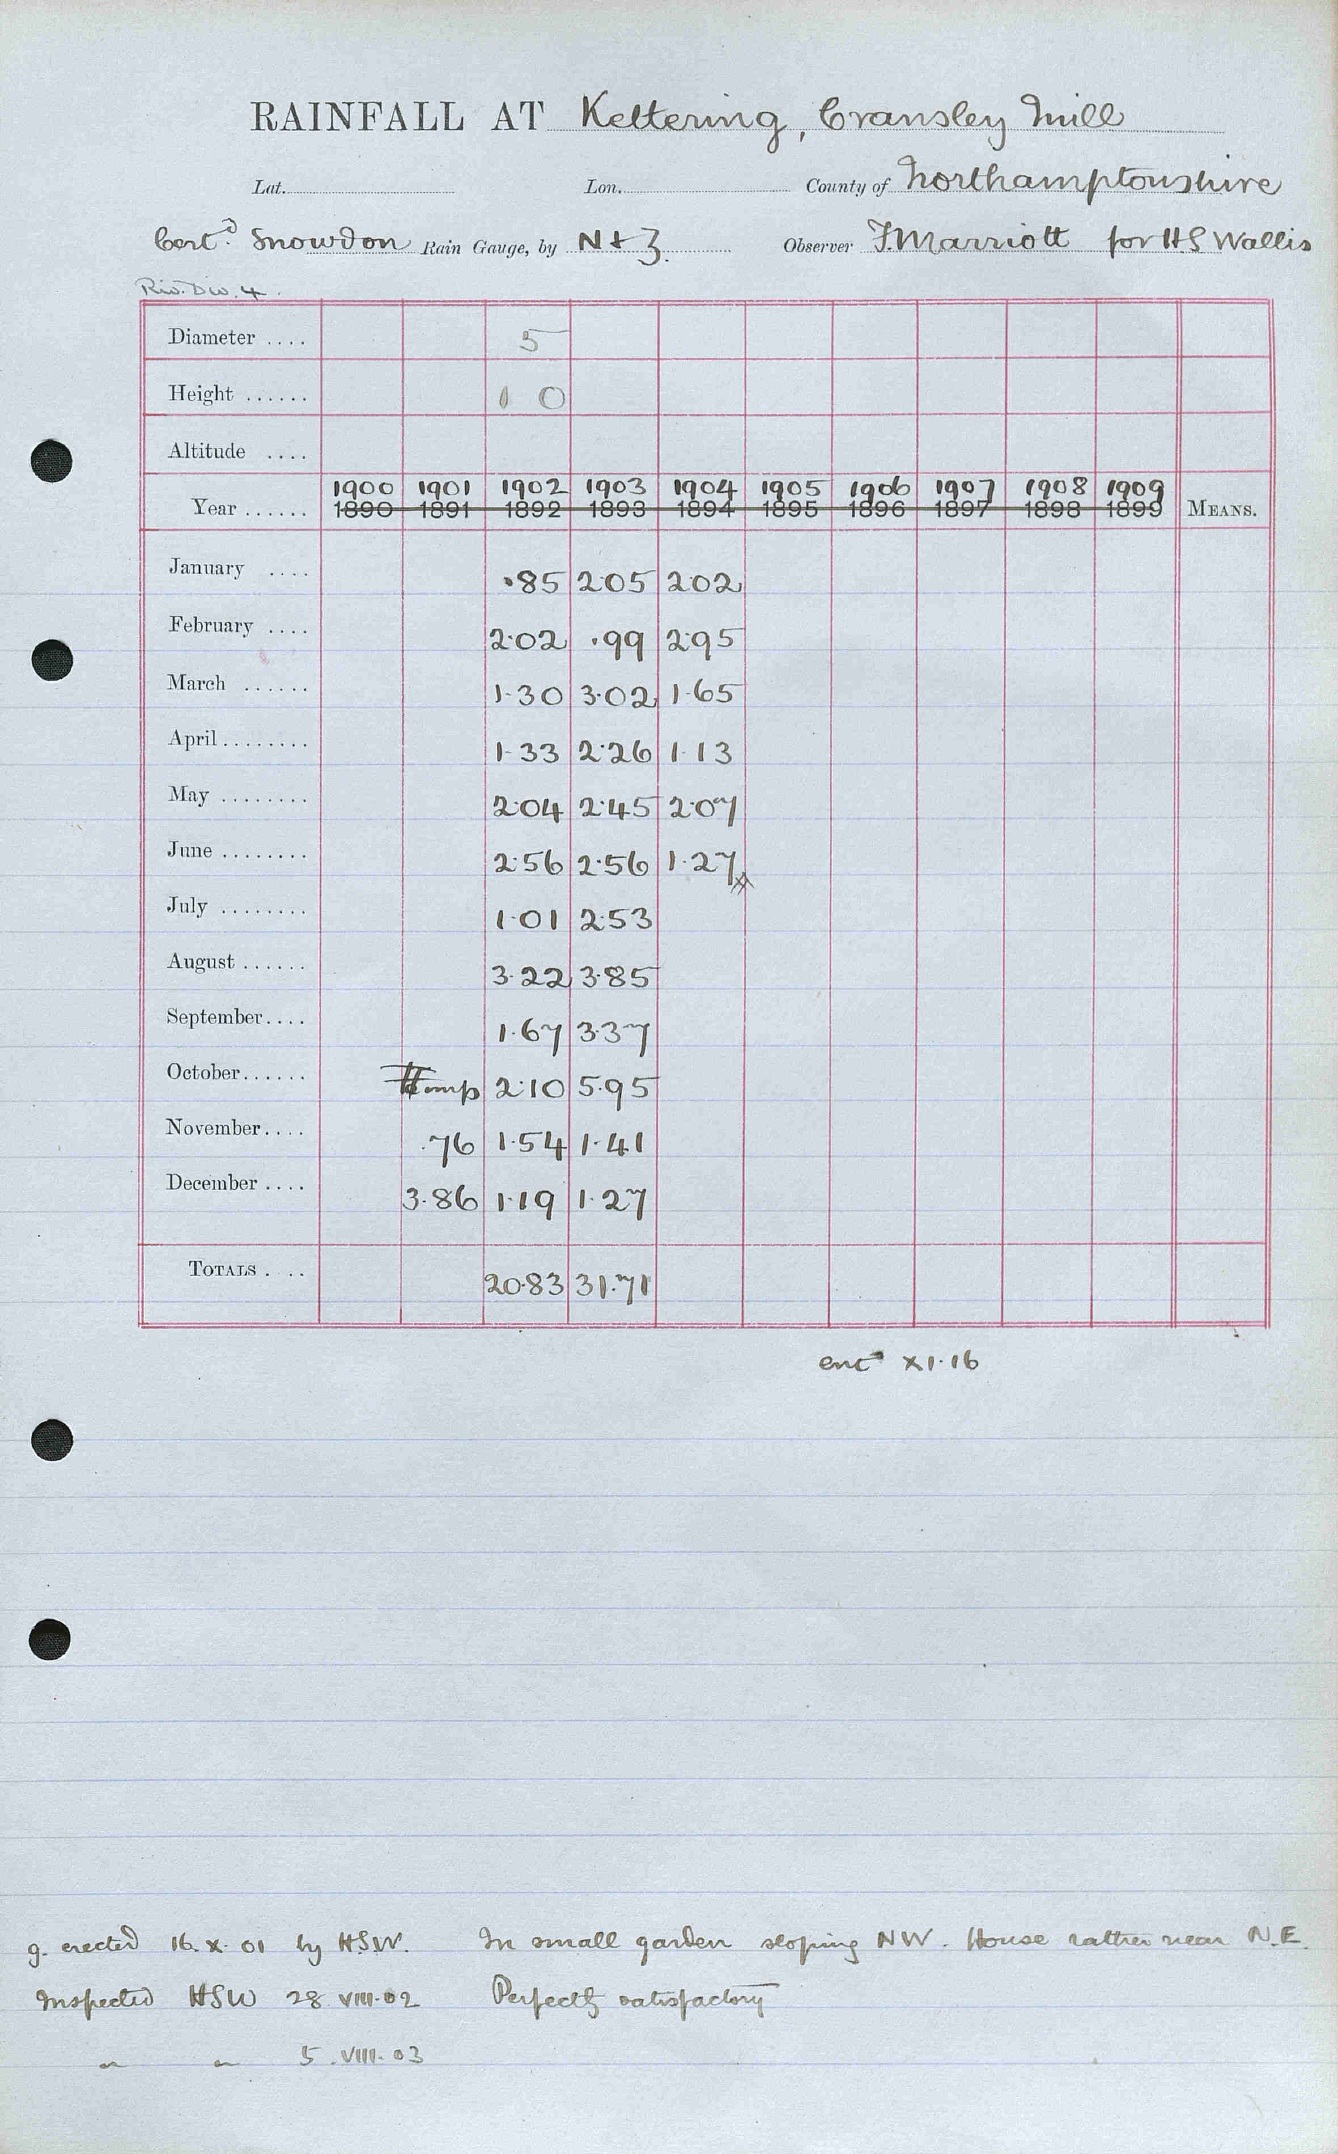 RAINFALL AT Kettering, Cransley Mill
Lat. Lon. County of Northamptonshire
Cert.d Snowdon Rain Gauge, by N & Z. Observer T. Marriott for H.S Wallis
Riv. Div. 4.
Diameter .... 5
Height ...... 1 0
Altitude ....
1900 1901 1902 1903 1904 1905 1906 1907 1908 1909
Year ...... 1890 1891 1892 1893 1894 1895 1896 1897 1898 1899 MEANS.
January .... ·85 2·05 2·02
February .... 2·02 ·99 2·95
March ...... 1·30 3·02 1·65
April ........ 1·33 2·26 1·13
May ........ 2·04 2·45 2·07
June ........ 2·56 2·56 1·27
July ........ 1·01 2·53
August ...... 3·22 3·85
September.... 1·67 3·37
October...... 2·10 5·95
November.... ·76 1·54 1·41
December .... 3·86 1·19 1·27
TOTALS . .. 20·83 31·71
entd XI·16
g. erected 16. X. 01 by H.S.W. In small garden sloping NW. House rather near N.E.
Inspected HSW 28 VIII·02 Perfectly satisfactory
" " 5. VIII·03